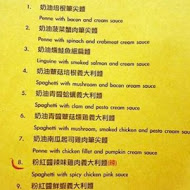 1. 奶油培根筆尖麵
Penne with bacon and cream sauce
2. 奶油菠菜蟹肉筆尖麵
Penne with spinach and crabmeat cream sauce
3. 奶油燻鮭魚細扁麵
Linguine with smoked salmon and cream sauce
4. 奶油蘑菇培根義大利麵
Spaghetti with mushroom and bacon cream sauce
5. 奶油青醬蛤蠣義大利麵
Spaghetti with clam and pesto cream sauce
6. 奶油青醬蘑菇燻雞義大利麵
Spaghetti with mushroom, smoked chicken and pesto cream sauce
7. 奶油南瓜起司雞肉筆尖麵
Penne with chicken fillet and pumpkin cream sauce
8. 粉紅醬辣味雞肉義大利麵
Spaghetti with spicy chicken pink sauce
9. 粉紅醬鮮蝦義大利麵